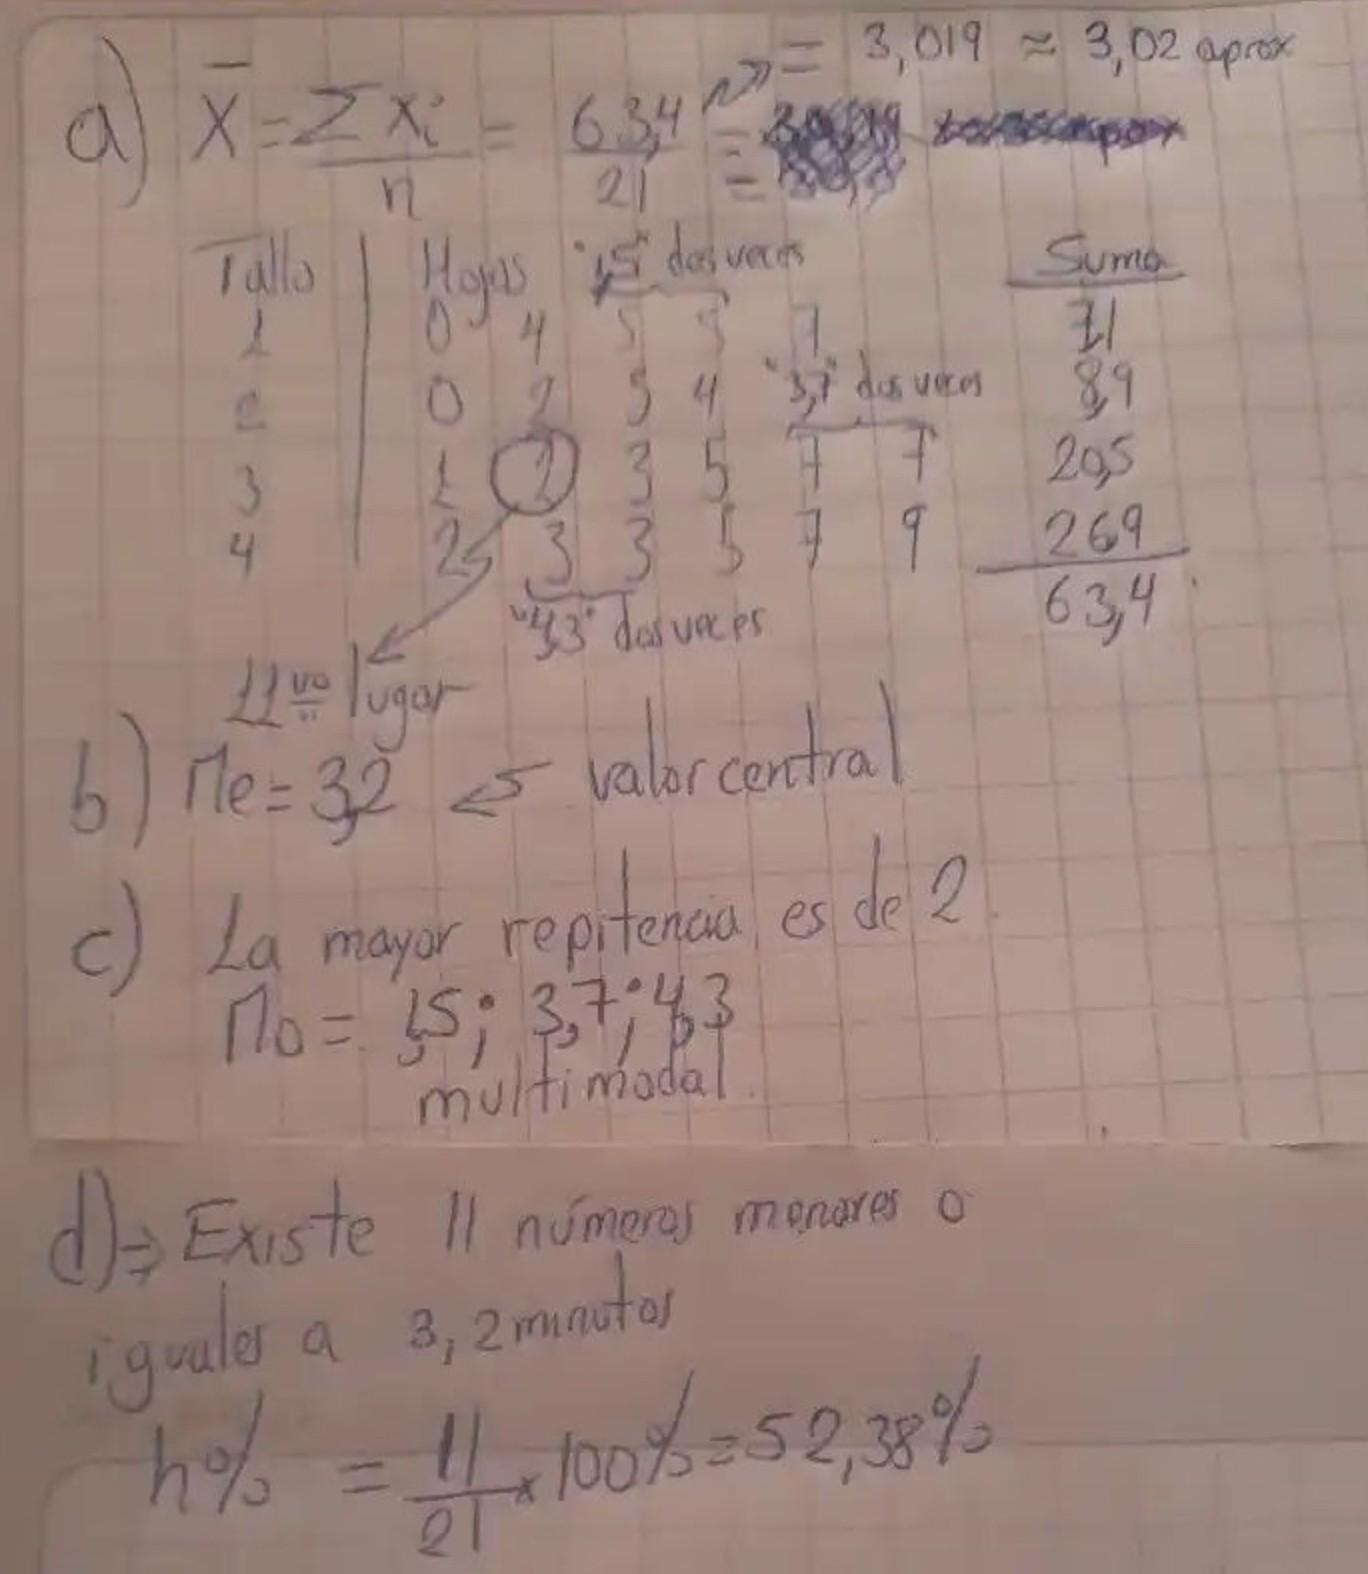 = 3,019 ≈ 3,02 aprox
a) X̄ = Σ Xi / n = 63,4 / 21 =
Tallo | Hojas "1,5" dos veces Suma
1 | 0 4 5 5 7 7,1
2 | 0 2 3 4 "3,7" dos veces 8,9
3 | 1 2 3 5 7 7 20,5
4 | 2 3 3 5 7 9 26,9
"4,3" dos veces 63,4
11vo lugar
b) Me = 3,2 ← valor central
c) La mayor repitencia es de 2.
Mo = 1,5; 3,7; 4,3
multimodal.
d) ⇒ Existe 11 números menores o
iguales a 3,2 minutos
h% = 11 / 21 × 100% = 52,38%